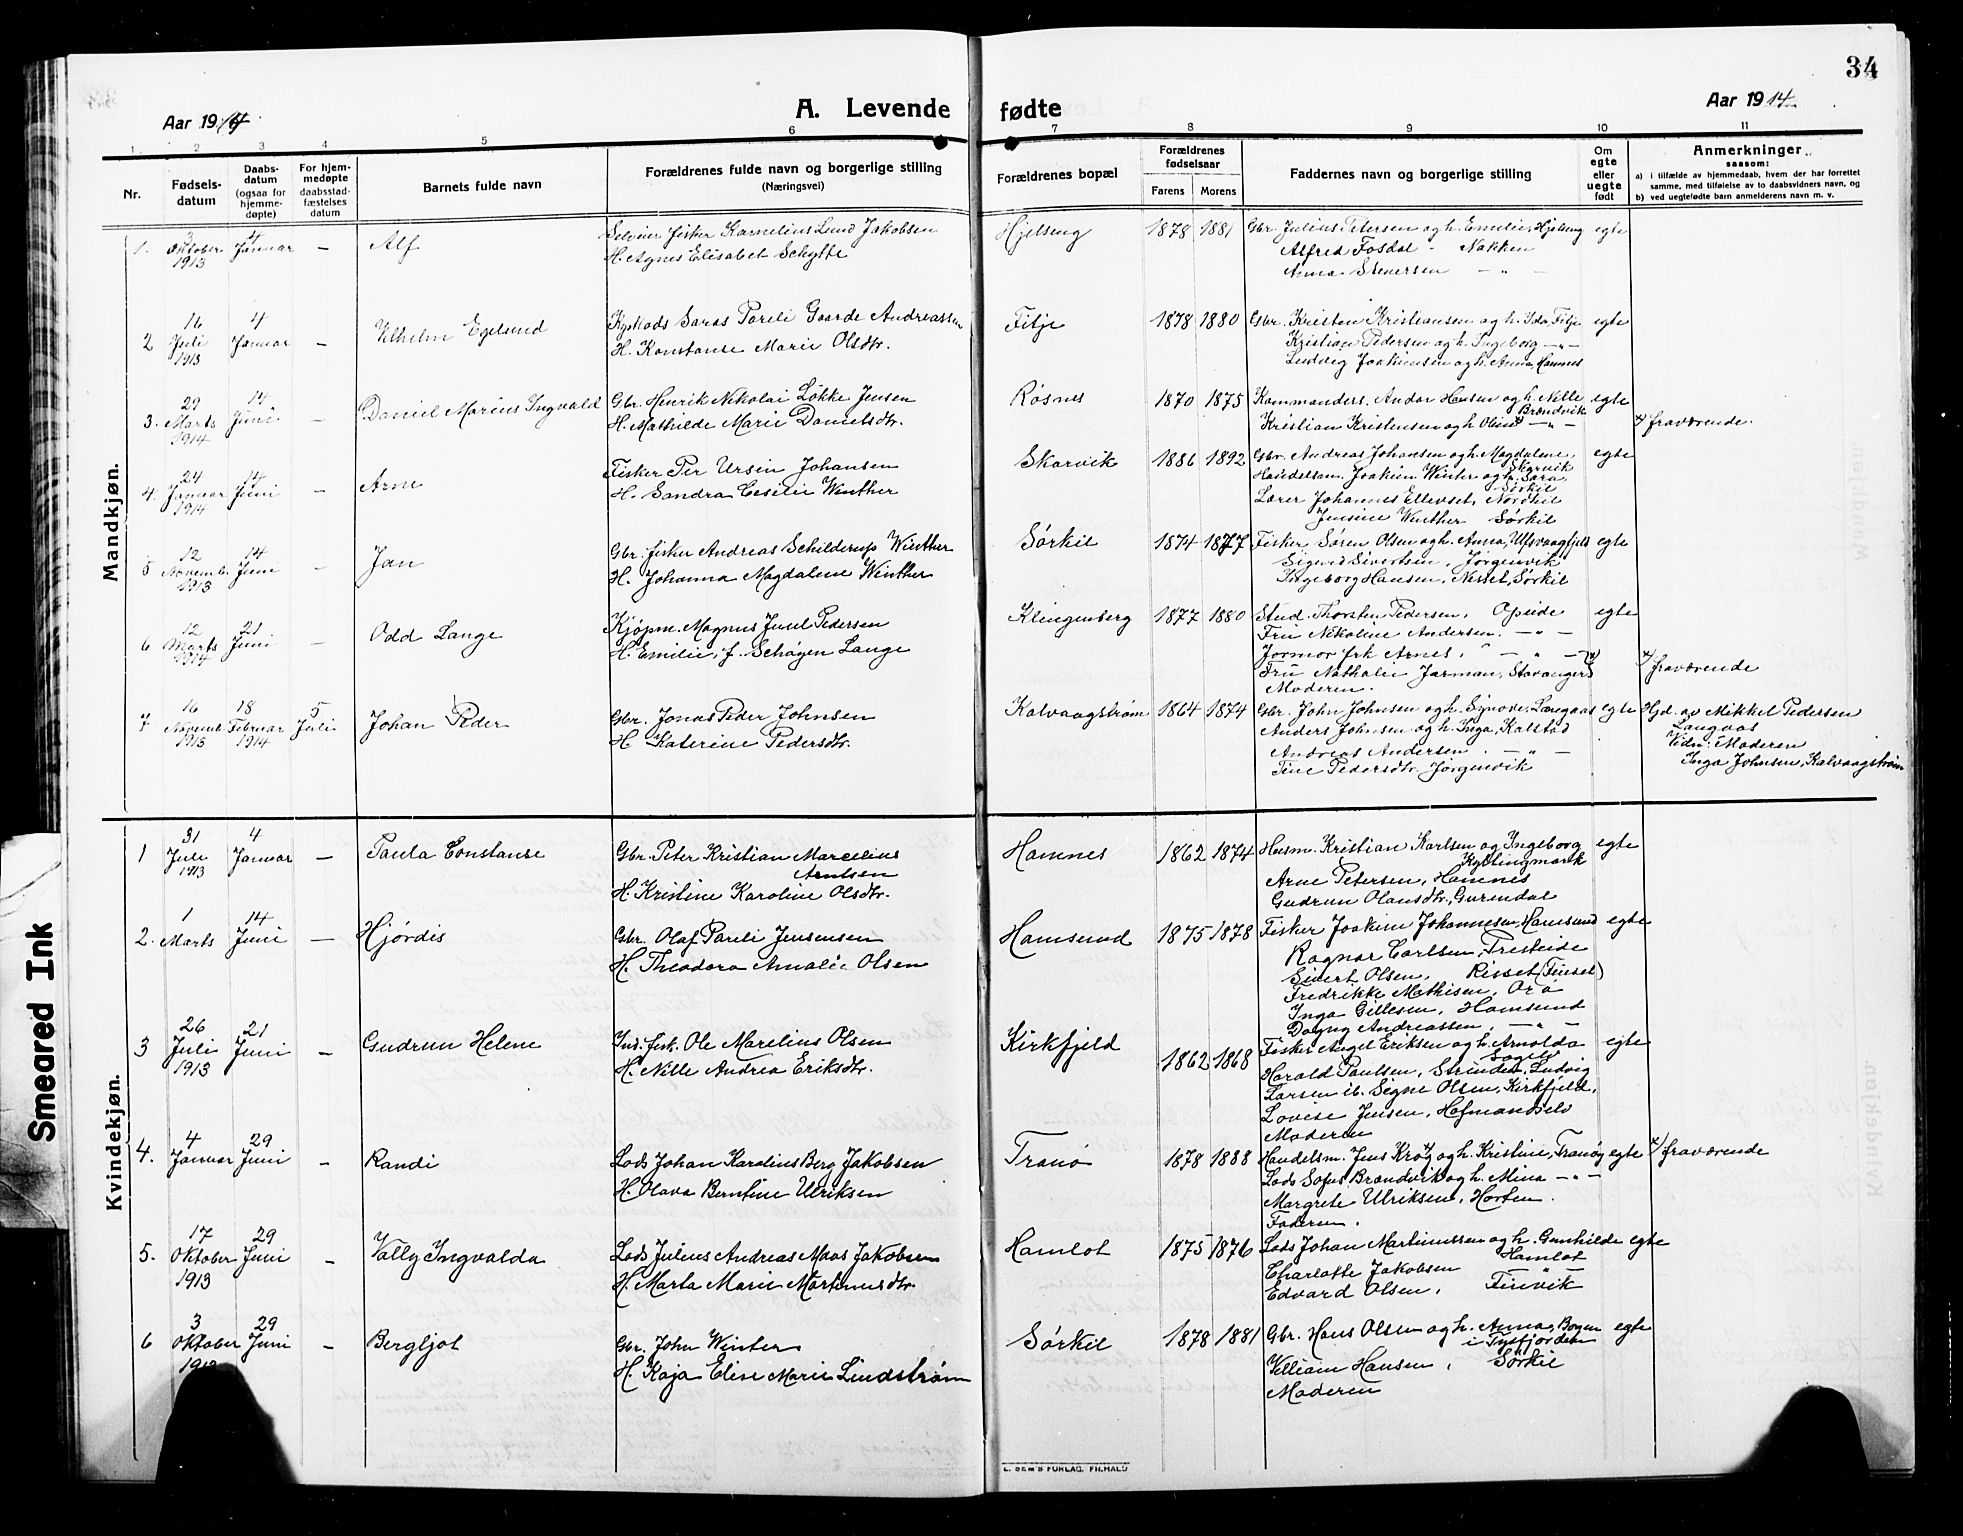 34
Aar 1914
A. Levende fødte
Aar 1914
1. 2 3 4 5 6 7 8 9 10 11
Nr.
Fødsels-
datum
Daabs-
datum
(ogsaa for
hjemme-
døpte)
For hjem-
medøpte
daabsstad-
fæstelses
datum
Barnets fulde navn
Forældrenes fulde navn og borgerlige stilling
(Næringsvei)
Forældrenes bopæl
Forældrenes
fødselsaar
Farens Morens
Faddernes navn og borgerlige stilling
Om
egte
eller
uegte
født
Anmerkninger
saasom:
a) i tilfælde av hjemmedaab, hvem der har forrettet
samme, med tilføielse av to daabsvidners navn, og
b) ved uegtefødte barn anmelderens navn m. v.
Mandkjøn.
1. 3 Oktober 1913 4 Januar – Alf
Selveier fisker Kornelius Lund Jakobsen
H. Agnes Elisabet Schytte
Hjelseng 1878 1881
Gbr. Julius Petersen og h. Emilie, Hjelseng egte
Alfred Fosdal - Nakken
Anna Sieversen – " –
2 16 Juli 1913 4 Januar – Vilhelm Egelund
Goarde Andreassen
H. Konstanse Marie Olsdtr.
Fitje 1878 1880
Gbr. Kristen Kristiansen og h. Ida, Fitje egte
Kristian Pedersen og h. Ingeborg – " –
Ludvig Joakimsen og h. Anna, Hamnes
3. 29 Marts 1914 14 Juni – Daniel Marius Ingvald
Gbr. Henrik Nikolai Løkke Jensen
H. Mathilde Marie Danielsdtr.
Røsnes 1870 1875
Kommanders. Andor Hansen og h. Nille egte
Brændvik
Kristian Kristensen og h. Oline – " –
x) fraværende.
4. 24 Januar 1914 14 Juni – Arne
Fisker Per Ursin Johansen
H. Sandra Cesilie Winther
Skarvik 1886 1892
Gbr. Andreas Johansen og h. Magdalene, egte
Skarvik
Handelsm. Joakim Winter og h. Sara,
Sørkil
Lærer Johannes Ellevset, Nordkil
Jensine Winther Sørkil
5 12 Novemb. 1913 14 Juni – Jan
Gbr. fisker Andreas Schilderup Winther
H. Johanna Magdalene Winther
Sørkil 1874 1877
Fisker Søren Olsen og h. Anna, Ulfsvaagfjeld egte
Sigurd Sivertsen, Jørgenvik
Ingeborg Hansen, Nesset, Sørkil
6 12 Marts 1914 21 Juni – Odd Lange
Kjøpm. Magnus Juul Pedersen
H. Emilie, f. Schøyen Lange
Klingenberg 1877 1880
Stud. Thorstein Pedersen, Opeide egte
Fru Nikoline Andersen. – " –
Jormor frk Arnes, – " –
Fru Nathalie Jarman, Stavanger x)
Moderen.
x) fraværende
7 16 Novemb. 1913 18 Februar 1914 5 Juli Johan Peder
Gbr. Jonas Peder Johnsen
H Katerine Pedersdtr.
Kalvaagstrøm 1864 1874
Gbr. John Johnsen og h. Synove, Langaas egte
Anders Johnsen og h. Inga, Kalstad
Andreas Andersen. – " –
Tine Pedersdtr. Jørgenvik
Hjd. av Mikkel Pedersen
Langaas
Vidn: Moderen
Inga Johnsen, Kalvaagstrøm
Kvindekjøn.
1 31 Juli 1913 4 Januar – Paula Constanse
Gbr. Peter Kristian Marcelius
Arntsen
H. Kristine Karoline Olsdtr.
Hamnes 1862 1874
Husm. Kristian Karlsen og Ingeborg egte
Kyllingmark
Arne Petersen, Hamnes
Gudrun Olausdtr., Gurendal
2. 1 Marts 14 Juni – Hjørdis
Gbr. Olaf Pareli Jensensen
H. Theodora Amalie Olsen
Hamsund 1875 1878
Fisker Joakim Johannesen, Hamsund egte
Ragnar Carlsen, Presteide
Sivert Olsen, Risset (Finset)
Fredrikke Mathisen, Orø
Inga Gillesen, Hamsund
Dagny Andreassen, – " –
3 26 Juli 1913 21 Juni – Gudrun Helene
Ind. fisk. Ole Marelius Olsen
H. Nille Andrea Eriksdtr.
Kirkfjeld 1862 1868
Fisker Angel Eriksen og h. Arnolda egte
Sagelv
Harald Paulsen, Strinden, Ludvig
Larsen ib. Signe Olsen, Kirkfjeld,
Lovise Jensen, Hofmandselv
Moderen
4. 4 Januar 29 Juni – Randi
Lods Johan Karolius Berg Jakobsen
H. Olava Berntine Ulriksen
Tranø 1878 1888
Handelsm. Jens Krøg og h. Kristine, Tranøy egte
Lods Sofus Brændvik og h. Mina – " –
Margrete Ulriksen, Horten.
Faderen.
x) fraværende
5. 17 Oktober 1913 29 Juni – Vally Ingvalda
Lods Julius Andreas Maas Jakobsen
H. Marta Marie Martinusdtr.
Hamlot 1875 1876
Lods Johan Martinussen og h. Gunhilde egte
Hamlot
Charlotte Jakobsen – " –
Edvard Olsen, Finvik
6 3 Oktober 1913 29 Juni – Bergljot
Gbr. John Winter
H. Kaja Elise Marie Lindstrøm
Sørkil 1878 1881
Gbr. Hans Olsen og h. Anna, Bogen egte
i Tysfjorden
Villiam Hansen, Sørkil
Moderen
E. SEM'S FORLAG, FR.HALD
Smeared Ink